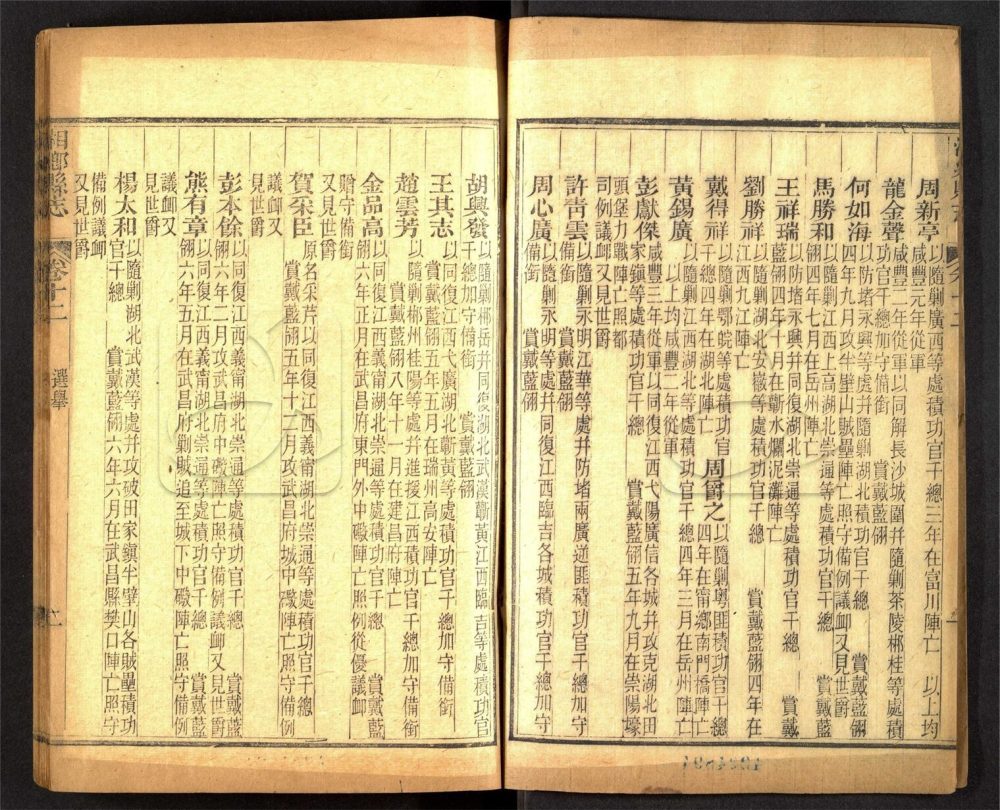 周新亭 以隨剿廣西等處積功官千總三年在富川陣亡 以上均
咸豐元年從軍
龍金聲 咸豐二年從軍以同解長沙城圍幷隨剿茶陵郴桂等處積
功官千總加守備銜 賞戴藍翎
何如海 以防堵永興等處幷隨剿湖北積功官千總 賞戴藍翎
四年九月攻半壁山賊壘陣亡照守備例議卹又見世爵
馬勝和 以隨剿江西上高湖北崇通等處積功官千總 賞戴藍
翎四年七月在岳州陣亡
王祥瑞 以防堵永興幷同復湖北崇通等處積功官千總 賞戴
藍翎四年十月在蘄水爛泥灘陣亡
劉勝祥 以隨剿湖北安徽等處積功官千總 賞戴藍翎四年在
江西九江陣亡
戴得祥 以隨剿鄂皖等處積功官
千總四年在湖北陣亡
周爵之 以隨剿粵匪積功官千總
四年在甯鄉南門橋陣亡
黃錫廣 以隨剿江西湖北等處積功官千總四年三月在岳州陣亡
以上均咸豐二年從軍
彭獻傑 咸豐三年從軍以同復江西弋陽廣信各城幷攻克湖北田
家鎭等處積功官千總 賞戴藍翎五年九月在崇陽壕
頭堡力戰陣亡照都
司例議卹又見世爵
許靑雲 以隨剿永明江華等處幷防堵兩廣逆匪積功官千總加守
備銜 賞戴藍翎
周心廣 以隨剿永明等處幷同復江西臨吉各城積功官千總加守
備銜 賞戴藍翎
胡興發 以隨剿郴岳幷同復湖北武漢蘄黃江西臨吉等處積功官
千總加守備銜 賞戴藍翎
王其志 以同復江西弋廣湖北蘄黃等處積功官千總加守備銜
賞戴藍翎五年五月在瑞州高安陣亡
趙雲芳 以隨剿郴州桂陽等處幷進援江西積功官千總加守備銜
賞戴藍翎八年十一月在建昌府陣亡
金品高 以同復江西義甯湖北崇通等處積功官千總 賞戴藍
翎六年正月在武昌府東門外中礮陣亡照例從優議卹
贈守備銜
又見世爵
賀采臣 原名采芹以同復江西義甯湖北崇通等處積功官千總
賞戴藍翎五年十二月攻武昌府城中礮陣亡照守備例
議卹又
見世爵
彭本餘 以同復江西義甯湖北崇通等處積功官千總 賞戴藍
翎六年二月攻武昌府中礮陣亡照守備例議卹又見世爵
熊有章 以同復江西義甯湖北崇通等處積功官千總 賞戴藍
翎六年五月在武昌府剿賊追至城下中礮陣亡照守備例
議卹又
見世爵
楊太和 以隨剿湖北武漢等處幷攻破田家鎭半壁山各賊壘積功
官千總 賞戴藍翎六年六月在武昌縣樊口陣亡照守
備例議卹
又見世爵
湘鄉縣志 卷十二 選舉